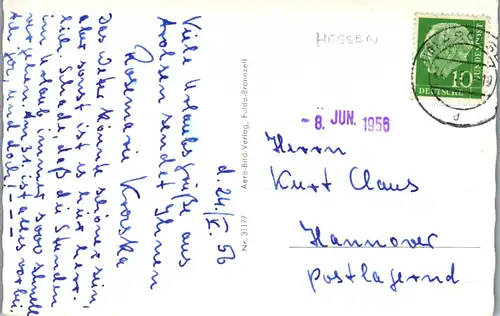 HESSEN
DEUTSCHE BUNDESPOST
10
- 8. JUN. 1956
Herrn
Kurt Claus
Hannover
postlagernd
Nr. 31177 Aero-Bild-Verlag, Fulda-Bronnzell
d. 24./V. 56
Viele Urlaubsgrüße aus
Arolsen sendet Ihnen
Rosemarie
Das Wetter könnte schöner sein,
aber sonst ist es hier herr-
lich. Schade, daß die Stunden
im Urlaub immer sooo schnell
vergehen. Am 31. ist alles vorbei.
und doch! ---